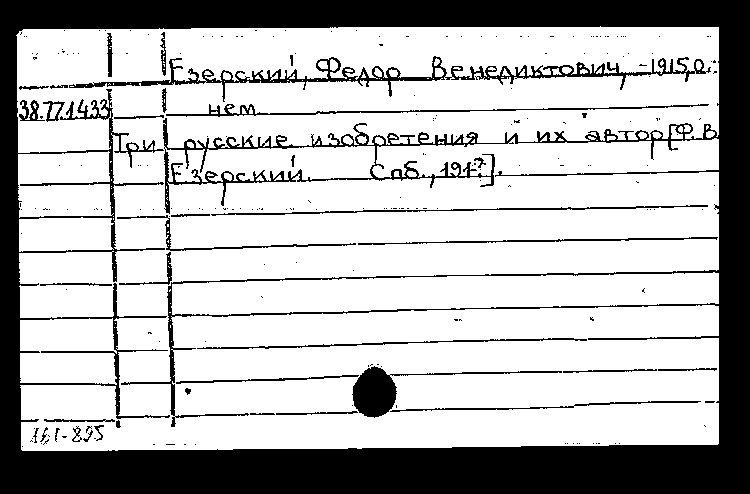 Езерский, Федор Венедиктович, -1915, о.
38.77.1433 нем
Три русские изобретения и их автор [Ф. В.
Езерский. Спб., 191-?].
161-895